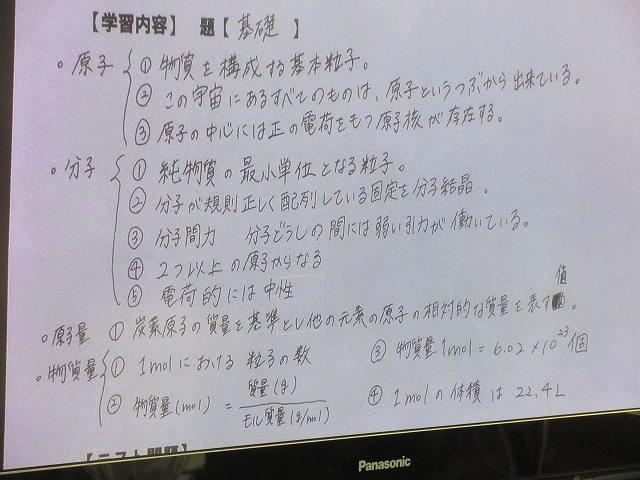 【学習内容】 題【 基礎 】
○ 原子 ① 物質を構成する基本粒子。
② この宇宙にあるすべてのものは、原子というつぶから出来ている。
③ 原子の中心には正の電荷をもつ原子核が存在する。
○ 分子 ① 純物質の最小単位となる粒子。
② 分子が規則正しく配列している固定を分子結晶。
③ 分子間力 分子どうしの間には弱い引力が働いている。
④ 2つ以上の原子からなる
⑤ 電荷的には中性
○ 原子量 ① 炭素原子の質量を基準とし他の元素の原子の相対的な質量を表す値。
○ 物質量 ① 1molにおける粒子の数
② 物質量(mol) = 質量(g) / モル質量(g/mol)
③ 物質量1mol = 6.02×10^23個
④ 1molの体積は22.4L
【テスト問題】
Panasonic